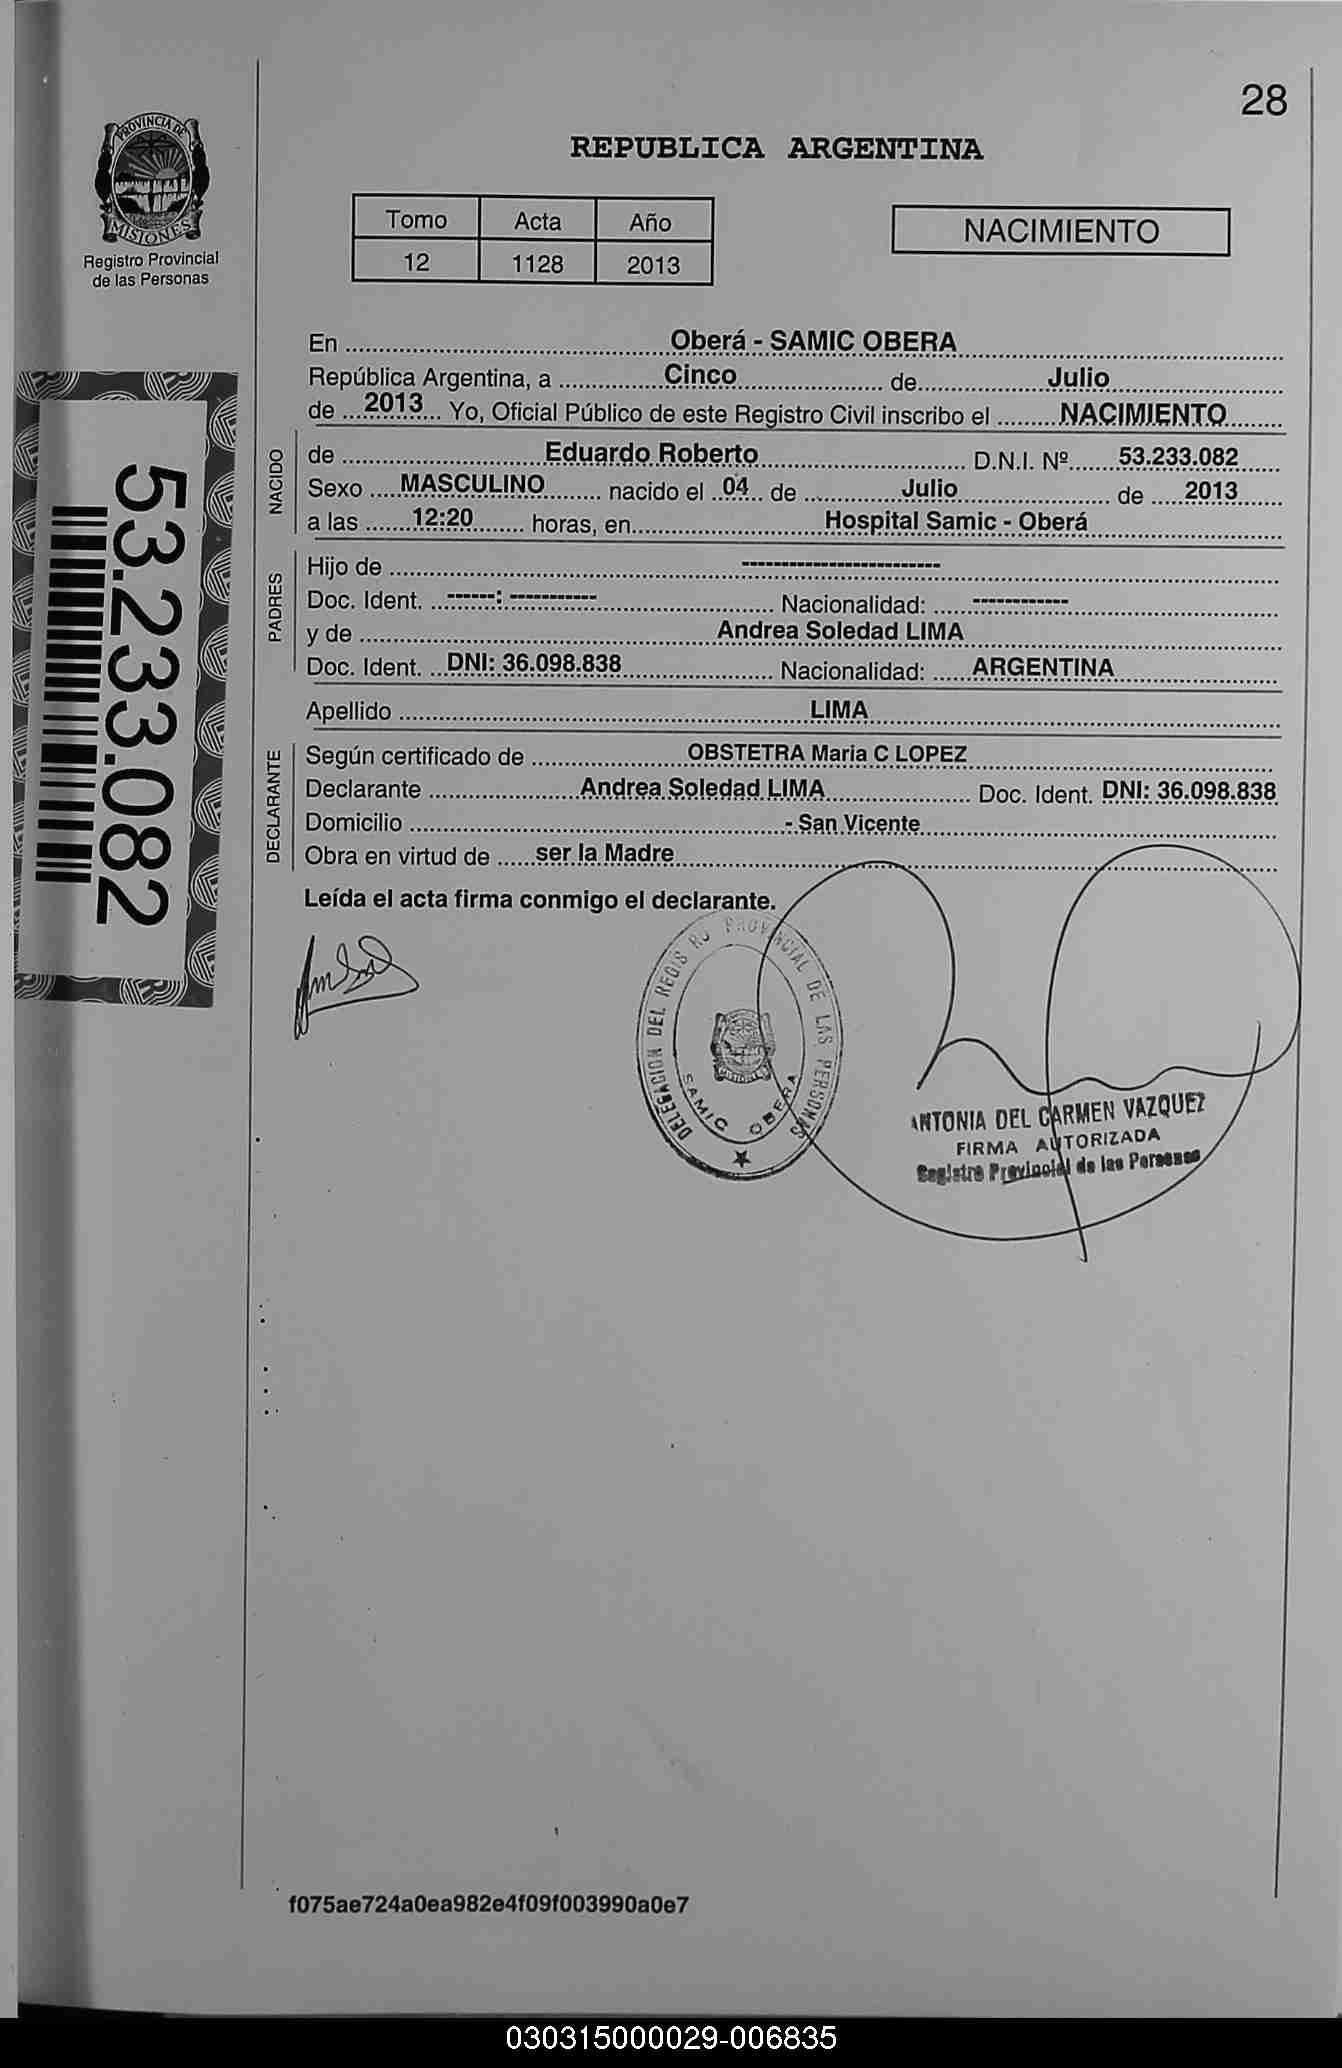 28
PROVINCIA DE
MISIONES
Registro Provincial
de las Personas
REPUBLICA ARGENTINA
Tomo Acta Año
12 1128 2013
NACIMIENTO
53.233.082
En Oberá - SAMIC OBERA
República Argentina, a Cinco de Julio
de 2013 Yo, Oficial Público de este Registro Civil inscribo el NACIMIENTO
NACIDO
de Eduardo Roberto D.N.I. Nº 53.233.082
Sexo MASCULINO nacido el 04 de Julio de 2013
a las 12:20 horas, en Hospital Samic - Oberá
PADRES
Hijo de -------------------------
Doc. Ident. ------: ----------- Nacionalidad: ------------
y de Andrea Soledad LIMA
Doc. Ident. DNI: 36.098.838 Nacionalidad: ARGENTINA
Apellido LIMA
DECLARANTE
Según certificado de OBSTETRA Maria C LOPEZ
Declarante Andrea Soledad LIMA Doc. Ident. DNI: 36.098.838
Domicilio - San Vicente
Obra en virtud de ser la Madre
Leída el acta firma conmigo el declarante.
DELEGACION DEL REGIS RO PROVINCIAL DE LAS PERSONAS
SAMIC OBERA
ANTONIA DEL CARMEN VAZQUEZ
FIRMA AUTORIZADA
Registro Provincial de las Personas
f075ae724a0ea982e4f09f003990a0e7
030315000029-006835